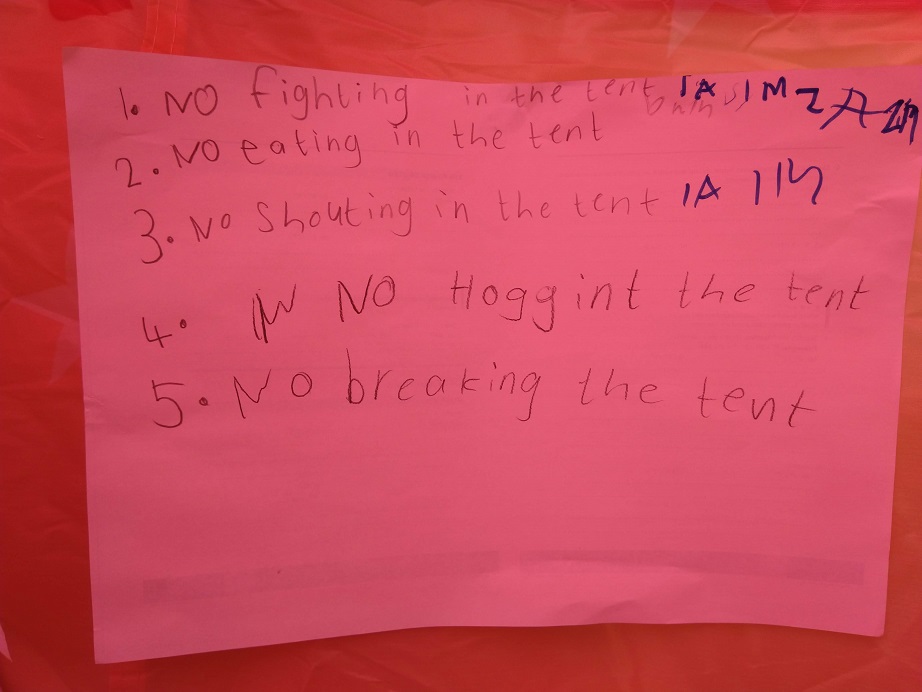 1. NO fighting in the tent 1A 1M 2A 2M
2. NO eating in the tent
3. NO Shouting in the tent 1A 1M
4. NO Hoggint the tent
5. NO breaking the tent